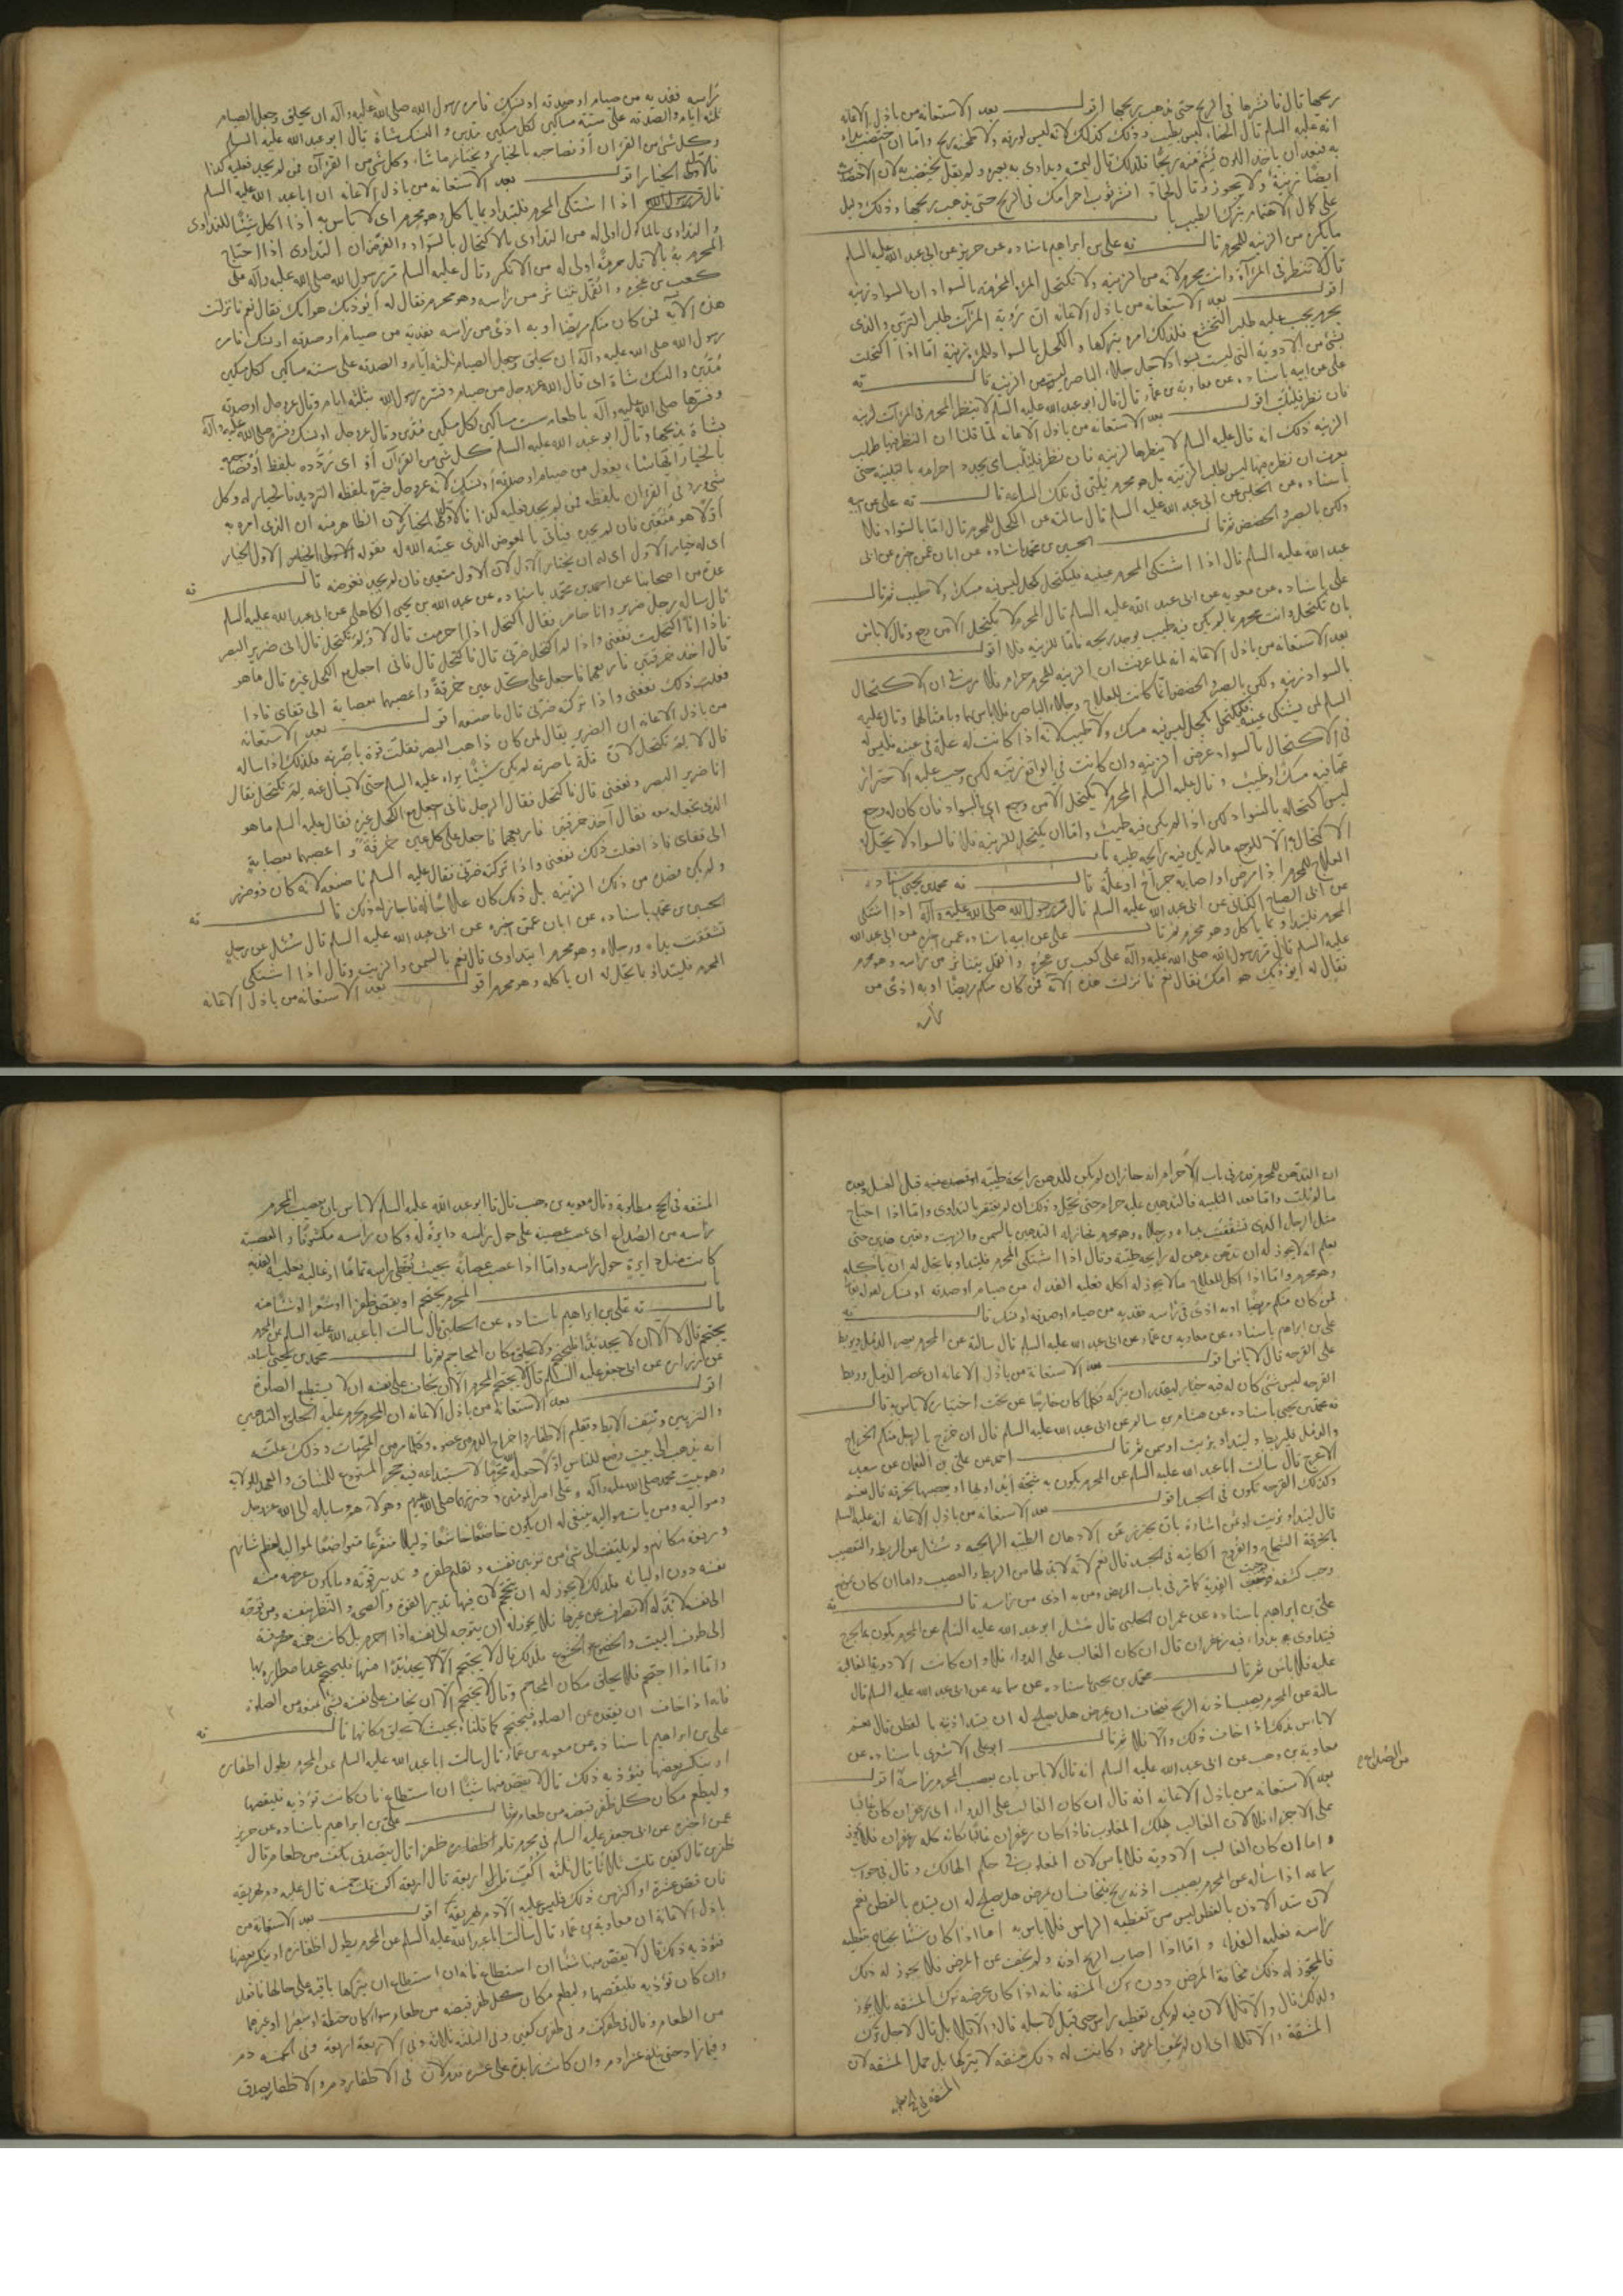 ريحها قال فانشرها في الريح حتى يذهب ريحها اقول بعد الاستعانة من باذل الاعانة
انه عليه السلام قال الحناء ليس بطيب وذلك كذلك لانه ليس لورقه ولا طحنه ريح واما ان
ايضا زينة ولا يجوز وقال لجاه انشر ثوب احرامك في الريح حتى يذهب ريحها وذلك دليل
على كمال الاهتمام بترك الطيب باب
ما يكره من الزينة للمحرم قال ته علي بن ابراهيم باسناده عن حريز عن ابي عبد الله عليه السلام
قال لا تنظر في المرآة وانت محرم لانه من الزينة ولا تكتحل المرأة المحرمة بالسواد ان السواد زينة
اقول بعد الاستعانة من باذل الاعانة ان رؤية المرآت طلب التزين والذي
يحرم يجب عليه طلب التخشع فلذلك امره بتركها والكحل بالسواد للمرأة زينة اما اذا اكتحلت
بشئ من الادوية التي ليست بسواد لاجل جلاء الباصر ليس من الزينة قال ته
علي عن ابيه باسناده عن معاوية بن عمار قال قال ابو عبد الله عليه السلام لا ينظر المحرم في المرآت لزينة
فان نظر فليلب اقول بعد الاستعانة من باذل الاعانة لما قلنا ان النظر فيها طلب
الزينة ذلك انه قال عليه السلام لا ينظرها لزينة فان نظر فليلب اي يجدد احرامه بالتلبية حتى
يعرف ان نظره فيها ليس لطلب الزينة بل هو محرم يلبي في تلك الساعة قال ته علي عن ابيه
باسناده عن الحلبي عن ابي عبد الله عليه السلام قال سالته عن الكحل للمحرم قال اما بالسواد فلا
ولكن بالصبر والحضض ثم قال الحسين بن محمد باسناده عن ابان عمن اخبره عن ابي
عبد الله عليه السلام قال اذا اشتكى المحرم عينيه فليكتحل بكحل ليس فيه مسك ولا طيب ثم قال
علي باسناده عن معوية عن ابي عبد الله عليه السلام قال المحرم لا يكتحل الا من وجع وقال لا باس
بان تكتحل وانت محرم بما لم يكن فيه طيب يوجد ريحه فاما للزينة فلا اقول
بعد الاستعانة من باذل الاعانة انه لما عرفت ان الزينة للمحرم حرام فلا ريب في ان الاكتحال
بالسواد زينة ولكن بالصبر والحضض لما كانت للعلاج وجلاء الباصر فلا باس بها وبامثالها وقال عليه
السلام لمن يشتكي عينيه فليكتحل بكحل ليس فيه مسك ولا طيب لانه اذا كانت له علة في عينه فليس له
في الاكتحال بالسواد غرض الزينة وان كانت في الواقع زينة لكن وجب عليه الاحتراز
عما فيه مسك او طيب وقال عليه السلام المحرم لا يكتحل الا من وجع اي بالسواد فان كان له وجع
ليس اكتحاله بالسواد لكن اذا لم يكن فيه طيب واما ان يكتحل للزينة فلا فالسواد لا يحل له
الاكتحال الا للوجع ما لم يكن فيه رايحة طيبة باب
العلاج للمحرم اذا مرض او اصابه جراح او علة قال ته محمد بن يحيى باسناده
عن ابي الصباح الكناني عن ابي عبد الله عليه السلام قال قال رسول الله صلى الله عليه وآله اذا اشتكى
المحرم فليتداو بما ياكل وهو محرم ثم قال علي عن ابيه باسناده عمن اخبره عن ابي عبد الله
عليه السلام قال مر رسول الله صلى الله عليه وآله على كعب بن عجرة والقمل يتناثر من راسه وهو محرم
فقال له ايوذيك هوامك فقال نعم فانزلت هذه الآية فمن كان منكم مريضا او به اذى من
راسه
راسه ففدية من صيام او صدقة او نسك فامره رسول الله صلى الله عليه وآله ان يحلق وجعل الصيام
ثلثة ايام والصدقة على ستة مساكين لكل مسكين مدين والنسك شاة قال ابو عبد الله عليه السلام
وكل شئ من القرآن او فصاحبه بالخيار يختار ما شاء وكل شئ من القرآن فمن لم يجد فعليه كذا
فالاول الخيار اقول بعد الاستعانة من باذل الاعانة ان ابا عبد الله عليه السلام
قال اذا اشتكى المحرم فليتداو بما ياكل وهو محرم اي لا باس به اذا اكل شيئا للتداوي
والتداوي بالماكول اولى له من التداوي بالاكتحال بالسواد والغرض ان التداوي اذا احتاج
المحرم به بالاقل حرمة اولى له من الاكثر وقال عليه السلام مر رسول الله صلى الله عليه وآله على
كعب بن عجرة والقمل يتناثر من راسه وهو محرم فقال له ايوذيك هوامك فقال نعم فانزلت
هذه الآية فمن كان منكم مريضا او به اذى من راسه ففدية من صيام او صدقة او نسك فامر
رسول الله صلى الله عليه وآله ان يحلق وجعل الصيام ثلثة ايام والصدقة على ستة مساكين لكل مسكين
مدين والنسك شاة اي قال الله عز وجل من صيام وفسره رسول الله بثلثة ايام وقال عز وجل او صدقة
وفسرها صلى الله عليه وآله باطعام ست مساكين لكل مسكين مدين وقال عز وجل او نسك وفسره صلى الله عليه وآله
بشاة يذبحها وقال ابو عبد الله عليه السلام كل شئ من القرآن او اي تردده بلفظ او فصاحبه
بالخيار
شئ ورد في القرآن بلفظة فمن لم يجد فعليه كذا فالاول الخيار لان الظاهر منه ان الذي امره به
اولا هو متعين فان لم يجده فيأتي بالعوض الذي عينه الله له فقوله الاول الخيار
اي له خيار الاول اي له ان يختار الاول لان الاول متعين فان لم يجد فعوضه قال ته
عدة من اصحابنا عن احمد بن محمد باسناده عن عبد الله بن يحيى الكاهلي عن ابي عبد الله عليه السلام
قال ساله رجل ضرير وانا حاضر فقال اكتحل اذا احرمت قال لا ولم تكتحل قال اني ضرير البصر
فاذا انا اكتحلت نفعني واذا لم اكتحل ضرني قال فاكتحل قال فاني اجعل مع الكحل غيره قال ما هو
قال آخذ خرقتين فاربعهما فاجعل على كل عين خرقة واعصبهما بعصابة الى قفاي فاذا
فعلت ذلك نفعني واذا تركته ضرني قال فاصنعه اقول بعد الاستعانة
من باذل الاعانة ان الضرير يقال لمن كان ذاهب البصر فقلت قوة باصرته فلذلك اذا ساله
قال لا لم تكتحل لان قلة باصرته لم يكن شيئا يراه عليه السلام حتى لا يسأل عنه لم تكتحل فقال
انا ضرير البصر ونفعني قال فاكتحل فقال الرجل فاني اجعل مع الكحل غيره فقال عليه السلام ما هو
الذي تجعل معه فقال آخذ خرقتين فاربعهما فاجعل على كل عين خرقة واعصبهما بعصابة
الى قفاي فاذا فعلت ذلك نفعني واذا تركته ضرني فقال عليه السلام فاصنعه لانه كان ذو ضرر
ولم يكن قصده من ذلك الزينة بل ذلك كان علاجا له فاجاز له ذلك قال ته
الحسين بن محمد باسناده عن ابان عمن اخبره عن ابي عبد الله عليه السلام قال سئل عن رجل
تشققت يداه ورجلاه وهو محرم ايتداوى قال نعم بالسمن والزيت وقال اذا اشتكى
المحرم فليتداو بما يحل له ان ياكله وهو محرم اقول بعد الاستعانة من باذل الاعانة
ان التدهن للمحرم قد مر في باب الاحرام انه جاز ان لم يكن للدهن رايحة طيبة قبل الغسل وبعده
ما لم يلب واما بعد التلبية فالتدهن عليه حرام حتى يحل وذلك ان لم يفتقر بالتداوي واما اذا احتاج
مثل الرجل الذي تشققت يداه ورجلاه وهو محرم فجاز له التدهين بالسمن والزيت وتعين هذين حتى
يعلم انه لا يجوز له ان يدهن بدهن له رايحة طيبة وقال اذا اشتكى المحرم فليتداو بما يحل له ان ياكله
وهو محرم واما اذا اكل للعلاج ما لا يجوز له اكله فعليه الفداء من صيام او صدقة او نسك لقوله تعالى
فمن كان منكم مريضا او به اذى في راسه ففدية من صيام او صدقة او نسك قال ته
علي بن ابراهيم باسناده عن معاوية بن عمار عن ابي عبد الله عليه السلام قال سالته عن المحرم يعصر الدمل ويربط
على القرحة قال لا باس اقول بعد الاستعانة من باذل الاعانة ان عصر الدمل وربط
القرحة ليس شئ كان له فيه خيار ليقدر ان يتركه فكلما كان خارجا عن تحت اختياره لا باس به قال
ته محمد بن يحيى باسناده عن هشام بن سالم عن ابي عبد الله عليه السلام قال ان خرج بالرجل منكم الخراج
والدمل فليربطه وليتداو بزيت او سمن ثم قال احمد عن علي بن النعمان عن سعيد
الاعرج قال سالت ابا عبد الله عليه السلام عن المحرم يكون به شجة ايداويها او يعصبها بخرقة قال نعم
وكذلك القرحة تكون في الجسد اقول بعد الاستعانة من باذل الاعانة انه عليه السلام
قال ليتداو بزيت او سمن اشارة بان يحترز عن الادهان الطيبة الرايحة وسئل عن الربط والتعصيب
بالخرقة الشجاج والقروح الكاينة في الجسد قال نعم لانه لابد لها من الربط والتعصيب واما ان كان
وجب كشفه الفدية كما مر في باب المريض ومن به اذى من راسه قال ته
علي بن ابراهيم باسناده عن عمران الحلبي قال سئل ابو عبد الله عليه السلام عن المحرم يكون به الجرح
فيتداوى بدواء فيه زعفران قال ان كان الغالب على الدواء فلا وان كانت الادوية الغالبة
عليه فلا باس ثم قال محمد بن يحيى باسناده عن سماعة عن ابي عبد الله عليه السلام قال
سالته عن المحرم يصيب اذنه الريح فيخاف ان يمرض هل يصلح له ان يسد اذنيه بالقطن قال نعم
لا باس بذلك اذا خاف ذلك والا فلا ثم قال ابو علي الاشعري باسناده عن
معاوية بن وهب عن ابي عبد الله عليه السلام انه قال لا باس بان يعصب المحرم راسه اقول
من الصداع
بعد الاستعانة من باذل الاعانة انه قال ان كان الغالب على الدواء اي زعفران كان غالبا
على الاجزاء فلا لان الغالب يهلك المغلوب فاذا كان زعفران غالبا كانه كله زعفران فلا يجوز
واما ان كان الغالب الادوية فلا باس لان المغلوب في حكم الهالك وقال في جواب
سماعة اذا ساله عن المحرم يصيب اذنه ريح فيخاف ان يمرض هل يصلح له ان يسده بالقطن نعم
لان سد الاذن بالقطن ليس من تغطية الراس فلا باس به اما اذا كان شيئا يحتاج بتغطية
راسه فعليه الفداء واما اذا اصاب الريح اذنه ولم يخف عن المرض فلا يجوز له ذلك
فالمجوز له ذلك مخافة المرض دون ترك المشقة فانه اذا كان غرضه ترك المشقة فلا يجوز
ولذلك قال والا فلا لان فيه لم يكن تغطية راس حتى قيل لاجله قال والا فلا بل قال لاجل ترك
المشقة والا فلا اي ان لم يخف المرض وكانت له ذلك مشقة لا يتركها بل حمل المشقة لان
المشقة في الحج
المشقة في الحج مطلوبة وقال معوية بن وهب قال قال ابو عبد الله عليه السلام لا باس بان يعصب المحرم
راسه من الصداع اي عصب عصبته على حول راسه دايرة له وكان راسه مكشوفا والعصبة
كانت مثل دايرة حول راسه واما اذا عصب عصابة بحيث تغطي راسه تماما او غالبه فعليه الفدية
باب المحرم يحتجم او يقص ظفرا او شعرا او شيئا منه
قال ته علي بن ابراهيم باسناده عن الحلبي قال سالت ابا عبد الله عليه السلام عن المحرم
يحتجم قال لا الا ان لا يجد بدا فليحتجم ولا يحلق مكان المحاجم ثم قال محمد بن يحيى باسناده
عن زرارة عن ابي جعفر عليه السلام قال لا يحتجم المحرم الا ان يخاف على نفسه ان لا يستطيع الصلوة
اقول بعد الاستعانة من باذل الاعانة ان المحرم يحرم عليه الحلق والتدهين
والتزيين ونتف الابط وتقليم الاظفار واخراج الدم من عضوه وكلها من المحرمات وذلك علته
انه يذهب الى بيت وضع للناس
وهو بيت محمد صلى الله عليه وآله وعلي امير المؤمنين وذريتهما صلى الله عليهم وهؤلاء هم وسايله الى الله عز وجل
ومواليه ومن يأت مواليه ينبغي له ان يكون خاضعا خاشعا ذليلا متضرعا متواضعا لمواليه لعظم شانهم
ورفعة مكانهم ولم يلتفت الى شئ من تزيين نفسه وتقليم ظفره وتدبير قوته وما يكون غرضه منه
نفسه دون اوليائه فلذلك لا يجوز له ان يحتجم لان فيها تدبير القوة والصحة والنظر بنفسه ومن توجه
الى نفسه لابد له الانصراف عن غيرها فلا يجوز له ان يتوجه الى نفسه اذا احرم بل كانت همته مصروفة
الى طوف البيت والخضوع والخشوع فلذلك قال لا يحتجم الا ان لا يجد بدا منها فليحتجم عند اضطراره بها
واما اذا احتجم فلا يحلق مكان المحاجم وقال لا يحتجم الا ان يخاف على نفسه بشئ يمنعه من الصلوة
فانه اذا خاف ان يقعده عن الصلوة فيحتجم كما قلنا بحيث لا يحلق مكانها قال ته
علي بن ابراهيم باسناده عن معوية بن عمار قال سالت ابا عبد الله عليه السلام عن المحرم يطول اظفاره
او ينكسر بعضها فيؤذيه ذلك قال لا يقص منها شيئا ان استطاع فان كانت تؤذيه فليقصها
وليطعم مكان كل ظفر قبضة من طعام ثم قال علي بن ابراهيم باسناده عن حريز
عمن اخبره عن ابي جعفر عليه السلام في محرم قلم اظفاره ظفرا قال يتصدق بكف من طعام قال
ظفرين قال كفين قلت ثلاثا قال ثلثة اكف قلت اربعة قال اربعة اكف قلت خمسة قال عليه دم يهريقه
فان قص عشرة او اكثر من ذلك فليس عليه الا دم يهريقه اقول بعد الاستعانة من
باذل الاعانة ان معاوية بن عمار قال سالت ابا عبد الله عليه السلام عن المحرم يطول اظفاره او ينكسر بعضها
فيؤذيه ذلك قال لا يقص منها شيئا ان استطاع فانه ان استطاع ان يتركها باقية على حالها فافعل
وان كان تؤذيه فليقصها وليطعم مكان كل ظفر قبضة من طعام سواء كان حنطة او شعيرا او غيرهما
من الطعام وقال في ظفر كف وفي ظفرين كفين وفي الثلثة ثلاثة وفي الاربعة اربعة وفي الخمسة دم
وفيما زاد حتى بلغ عشرا دم وان كانت زايدة على عشرة فدم لان في الاظفار دم والاظفار يصدق